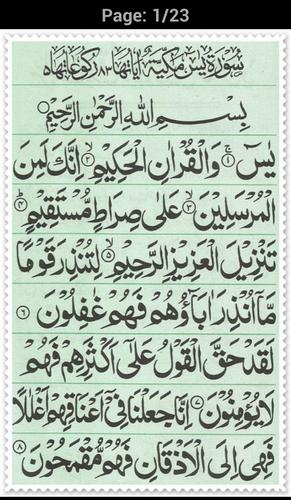 Page: 1/23
سُوْرَةُ يٰسٓ مَكِّيَّةٌ اٰيَاتُهَا ٨٣ رُكُوْعَاتُهَا ٥
بِسْمِ اللهِ الرَّحْمٰنِ الرَّحِيْمِ ○
يٰسٓ ۚ ﴿١﴾ وَالْقُرْاٰنِ الْحَكِيْمِ ۙ ﴿٢﴾ اِنَّكَ لَمِنَ
الْمُرْسَلِيْنَ ۙ ﴿٣﴾ عَلٰى صِرَاطٍ مُّسْتَقِيْمٍ ؕ ﴿٤﴾
تَنْزِيْلَ الْعَزِيْزِ الرَّحِيْمِ ۙ ﴿٥﴾ لِتُنْذِرَ قَوْمًا
مَّاۤ اُنْذِرَ اٰبَآؤُهُمْ فَهُمْ غٰفِلُوْنَ ﴿٦﴾
لَقَدْ حَقَّ الْقَوْلُ عَلٰٓى اَكْثَرِهِمْ فَهُمْ
لَا يُؤْمِنُوْنَ ﴿٧﴾ اِنَّا جَعَلْنَا فِيْۤ اَعْنَاقِهِمْ اَغْلٰلًا
فَهِيَ اِلَى الْاَذْقَانِ فَهُمْ مُّقْمَحُوْنَ ﴿٨﴾